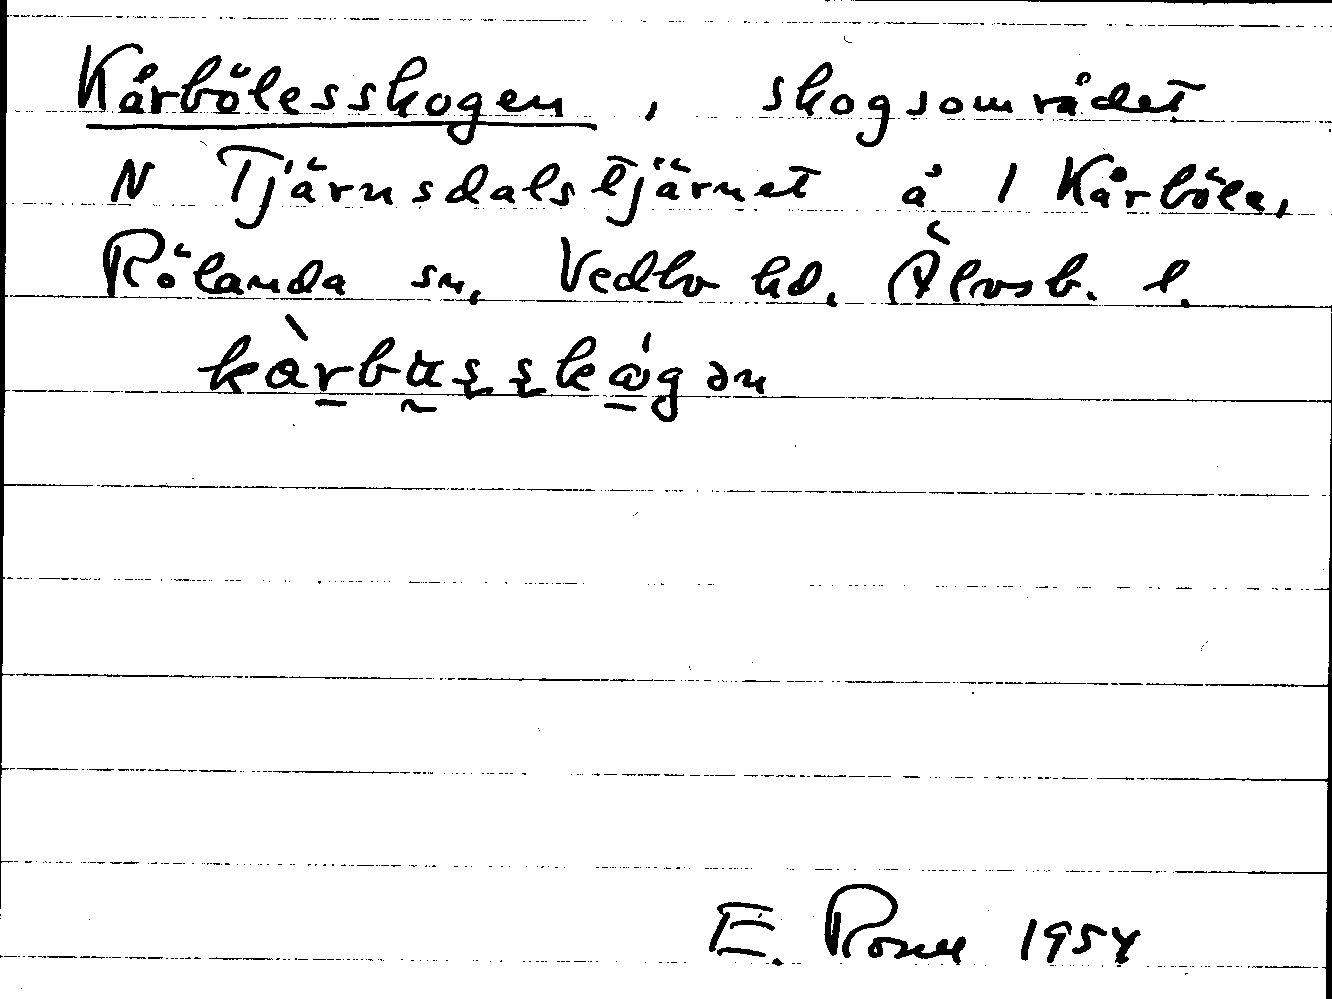 Kårbölesskogen, skogsområdet
N Tjärnsdalstjärnet å 1 Kårböle,
Rölanda sn, Vedbo hd. Älvsb. l.
E. Rosell 1954